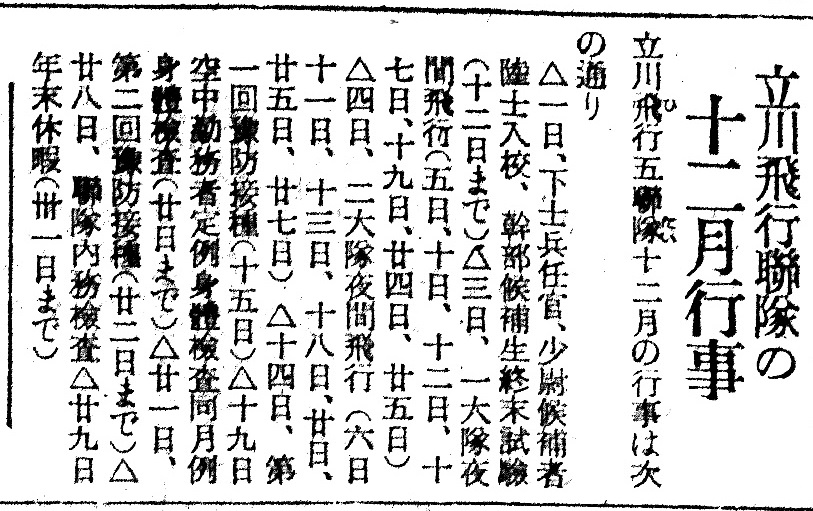 立川飛行聯隊の
十二月行事
立川飛行五聯隊十二月の行事は次
の通り
△一日、下士兵任官、少尉候補者
陸士入校、幹部候補生終末試驗
(十二日まで)△三日、一大隊夜
間飛行(五日、十日、十二日、十
七日、十九日、廿四日、廿五日)
△四日、二大隊夜間飛行(六日
十一日、十三日、十八日、廿日、
廿五日、廿七日)△十四日、第
一回豫防接種(十五日)△十九日
空中勤務者定例身體檢査同月例
身體檢査(廿日まで)△廿一日、
第二回豫防接種(廿二日まで)△
廿八日、聯隊内務檢査△廿九日
年末休暇(卅一日まで)